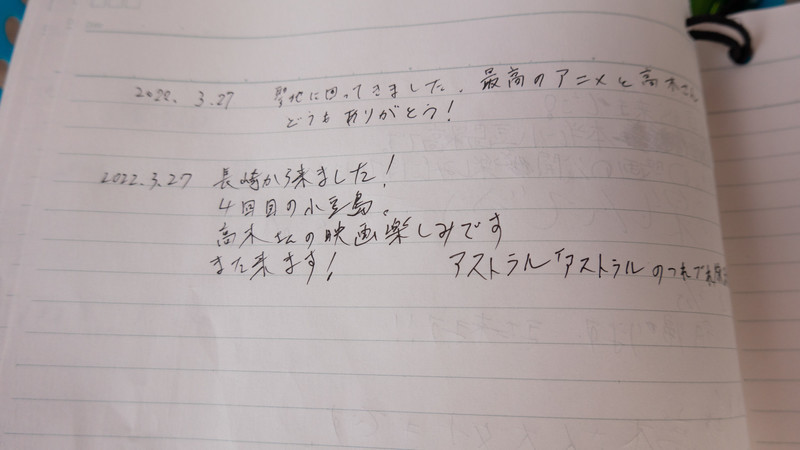 2022. 3.27 聖地に回ってきました。最高のアニメと高木さん
どうもありがとう!
2022.3.27 長崎から来ました!
4回目の小豆島。
高木さんの映画楽しみです
また来ます! アストラル「アストラルのつれづれ